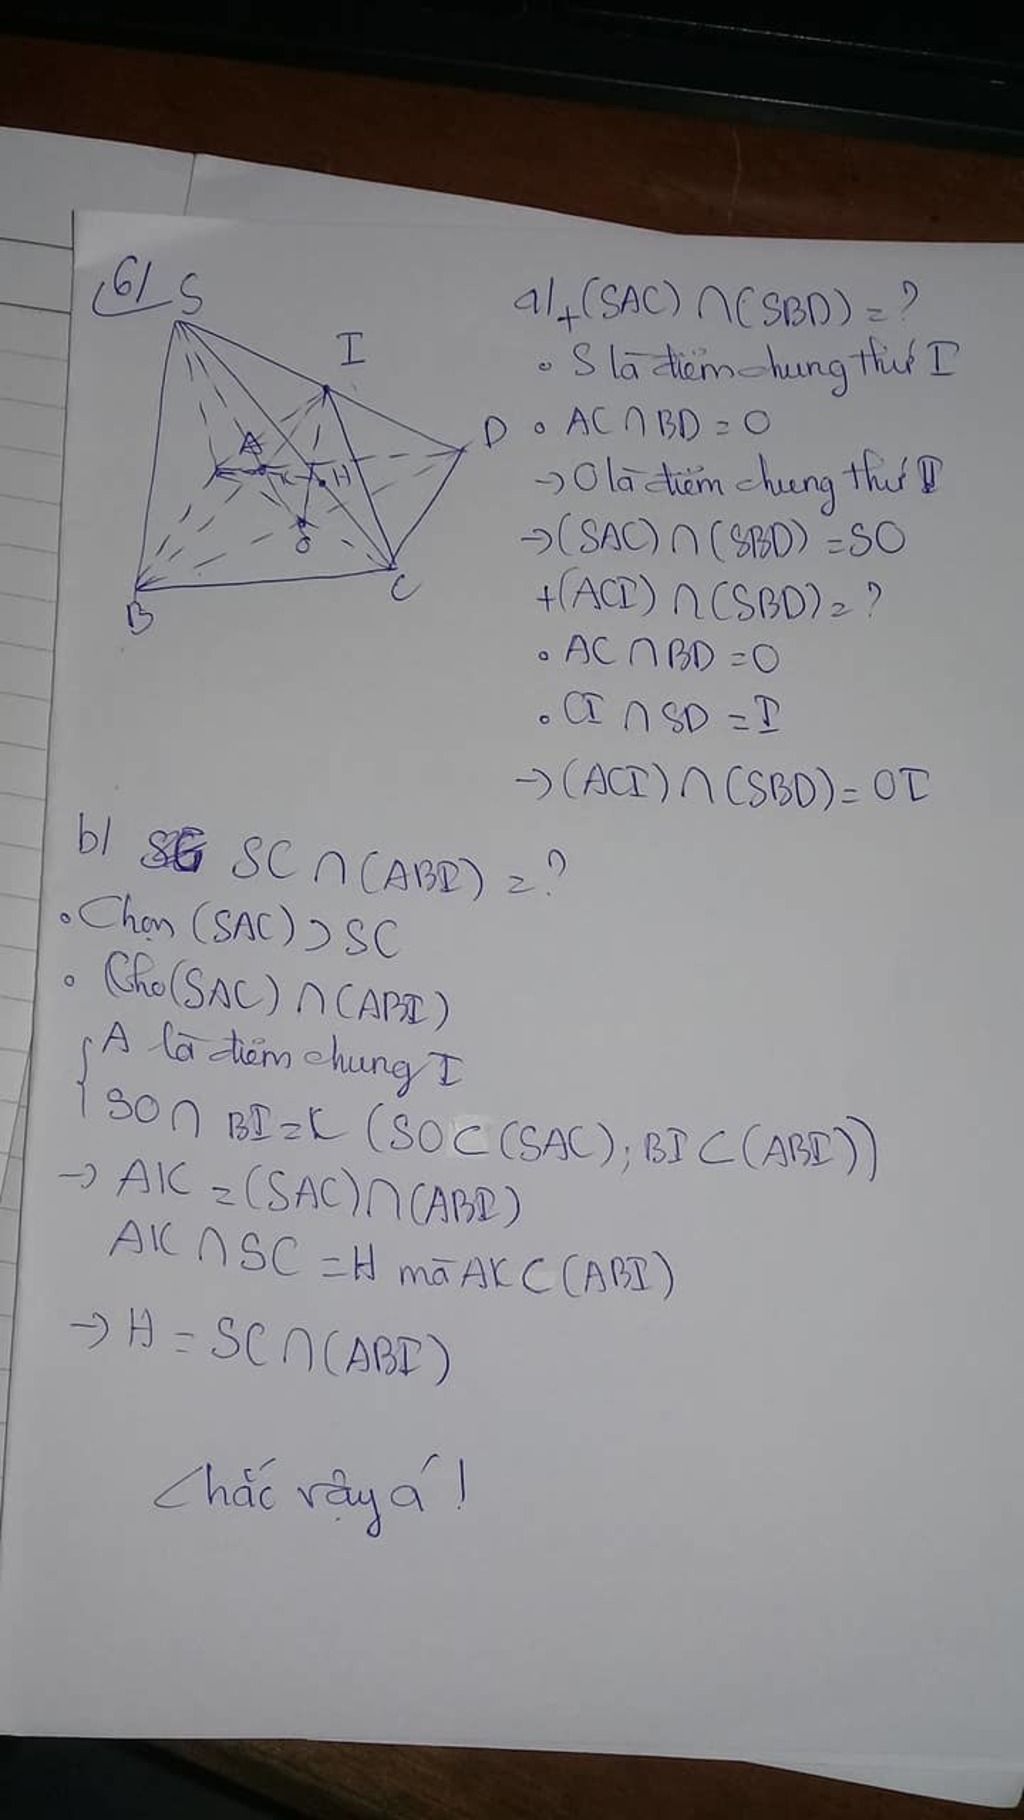 6/
S
I
A
D
K
H
O
B
C
a/ + (SAC) ∩ (SBD) = ?
• S là điểm chung thứ I
• AC ∩ BD = O
→ O là điểm chung thứ II
→ (SAC) ∩ (SBD) = SO
+ (ACI) ∩ (SBD) = ?
• AC ∩ BD = O
• CI ∩ SD = I
→ (ACI) ∩ (SBD) = OI
b/ SC ∩ (ABI) = ?
• Chọn (SAC) ⊃ SC
• Cho (SAC) ∩ (ABI)
{ A là điểm chung I
SO ∩ BI = K (SO ⊂ (SAC); BI ⊂ (ABI))
→ AK = (SAC) ∩ (ABI)
AK ∩ SC = H mà AK ⊂ (ABI)
→ H = SC ∩ (ABI)
Chắc vậy á !